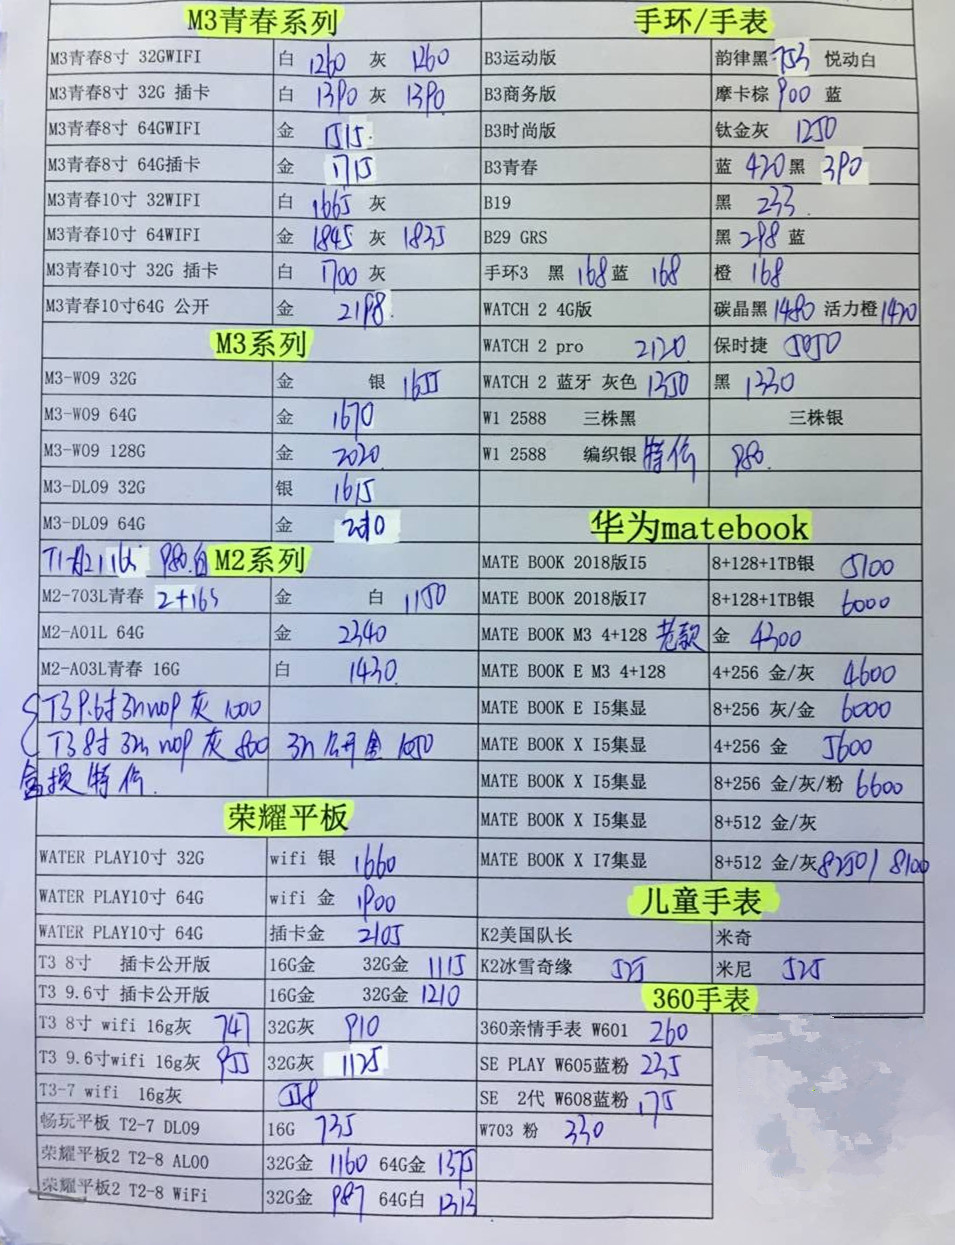 M3青春系列
M3青春8寸 32GWIFI 白 1260 灰 1260
M3青春8寸 32G 插卡 白 1390 灰 1390
M3青春8寸 64GWIFI 金 1515
M3青春8寸 64G插卡 金 1715
M3青春10寸 32WIFI 白 1665 灰
M3青春10寸 64WIFI 金 1845 灰 1835
M3青春10寸 32G 插卡 白 1700 灰
M3青春10寸64G 公开 金 2198
M3系列
M3-W09 32G 金 银 1655
M3-W09 64G 金 1670
M3-W09 128G 金 2020
M3-DL09 32G 银 1615
M3-DL09 64G 金
M2系列
M2-703L青春 2+16G 金 白 1150
M2-A01L 64G 金 2340
M2-A03L青春 16G 白 1430
T3 9.6寸 灰
T3 8寸 灰 公开 金 1050
盒损 特价.
荣耀平板
WATER PLAY10寸 32G wifi 银 1660
WATER PLAY10寸 64G wifi 金 1900
WATER PLAY10寸 64G 插卡金 2105
T3 8寸 插卡公开版 16G金 32G金 1115
T3 9.6寸 插卡公开版 16G金 32G金 1210
T3 8寸 wifi 16g灰 747 32G灰 910
T3 9.6寸wifi 16g灰 955 32G灰 1125
T3-7 wifi 16g灰 558
畅玩平板 T2-7 DL09 16G 735
荣耀平板2 T2-8 AL00 32G金 1160 64G金 1375
荣耀平板2 T2-8 WiFi 32G金 987 64G白 1313
手环/手表
B3运动版 韵律黑 753 悦动白
B3商务版 摩卡棕 900 蓝
B3时尚版 钛金灰 1250
B3青春 蓝 420 黑 390
B19 黑 233
B29 GRS 黑 298 蓝
手环3 黑 168 蓝 168 橙 168
WATCH 2 4G版 碳晶黑 1480 活力橙 1470
WATCH 2 pro 2120 保时捷 5050
WATCH 2 蓝牙 灰色 1350 黑 1330
W1 2588 三株黑 三株银
W1 2588 编织银 特价 980.
华为matebook
MATE BOOK 2018版I5 8+128+1TB银 5100
MATE BOOK 2018版I7 8+128+1TB银 6000
MATE BOOK M3 4+128 老款 金 4300
MATE BOOK E M3 4+128 4+256 金/灰 4600
MATE BOOK E I5集显 8+256 灰/金 6000
MATE BOOK X I5集显 4+256 金 5600
MATE BOOK X I5集显 8+256 金/灰/粉 6600
MATE BOOK X I5集显 8+512 金/灰
MATE BOOK X I7集显 8+512 金/灰 8250/8100
儿童手表
K2美国队长 米奇
K2冰雪奇缘 525 米尼 525
360手表
360亲情手表 W601 260
SE PLAY W605蓝粉 235
SE 2代 W608蓝粉 175
W703 粉 330